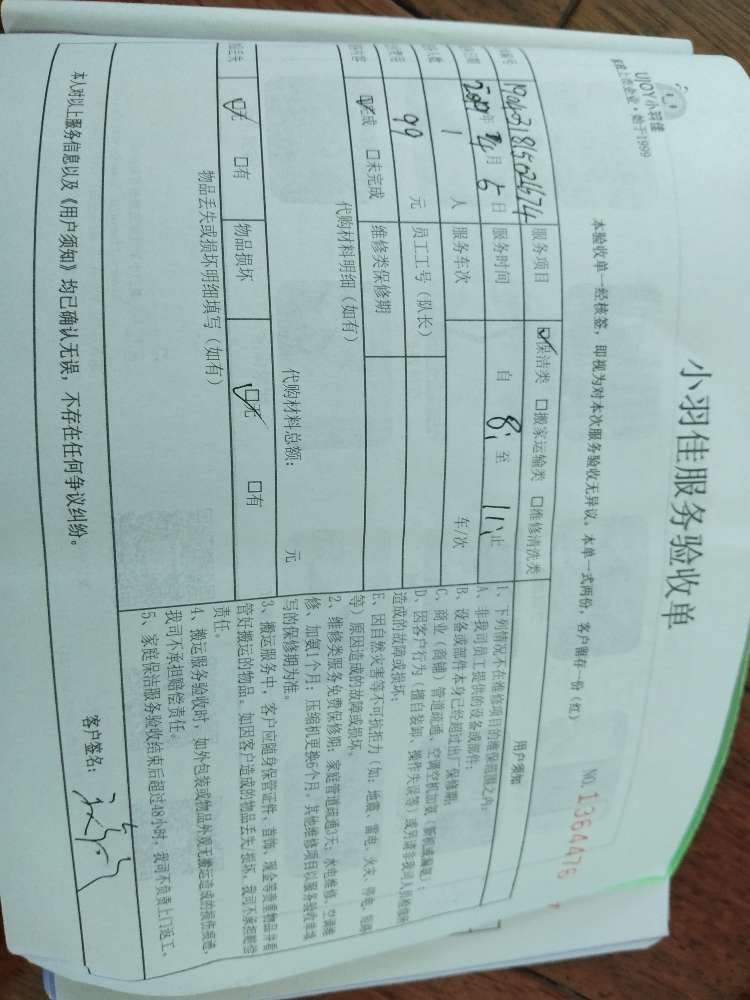 UJOY小羽佳
家政上市企业·始于1999
小羽佳服务验收单
NO.1364476
本验收单一经核签，即视为对本次服务验收无异议。本单一式两份，客户留存一份（红）
编号
服务项目 ☑保洁类 □搬家运输类 □维修清洗类
年 月 5 日 服务时间 自 8: 至 11: 止
1 人 服务车次 车/次
99 元 员工工号（队长）
☑完成 □未完成 维修类保修期
代购材料明细（如有）
代购材料总额： 元
☑无 □有 物品损坏 ☑无 □有
物品丢失或损坏明细填写（如有）
用户须知
1、下列情况不在维修项目的维保范围之内：
A、非我司员工提供的设备或部件；
B、设备或部件本身已经超过出厂保修期；
C、商业（商铺）管道疏通、空调空机加氨（新机或漏氨）；
D、因客户行为（擅自装卸、操作失误等）或另请非我司人员维修所
造成的故障或损坏；
E、因自然灾害等不可抗拒力（如：地震、雷电、火灾、停电、短路
等）原因造成的故障或损坏。
2、维修类服务免费保修期：家庭管道疏通3天；水电维修、空调维
修、加氨1个月；压缩机更换6个月。其他维修项目以服务验收单填
写的保修期为准。
3、搬运服务中，客户应随身保管证件、首饰、现金等贵重物品并看
管好搬运的物品。如因客户造成的物品丢失/损坏，我司不承担赔偿
责任。
4、搬运服务验收时，如外包装或物品外观无搬运造成的损伤痕迹，
我司不承担赔偿责任。
5、家庭保洁服务验收结束后超过48小时，我司不负责上门返工。
本人对以上服务信息以及《用户须知》均已确认无误，不存在任何争议纠纷。
客户签名：